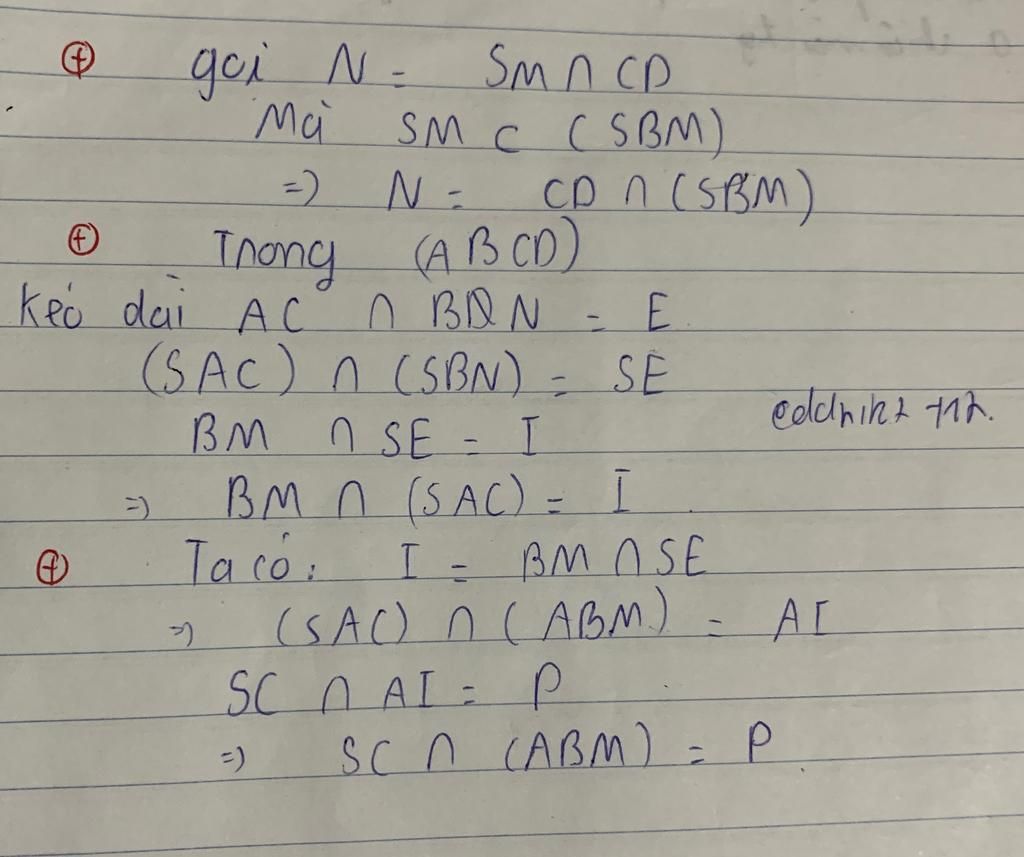 ⊕ gọi N = SM ∩ CD
Mà SM ⊂ (SBM)
=> N = CD ∩ (SBM)
⊕ Trong (ABCD)
kéo dài AC ∩ BN = E
(SAC) ∩ (SBN) = SE
BM ∩ SE = I
=> BM ∩ (SAC) = I
⊕ Ta có: I = BM ∩ SE
=> (SAC) ∩ (ABM) = AI
SC ∩ AI = P
=> SC ∩ (ABM) = P